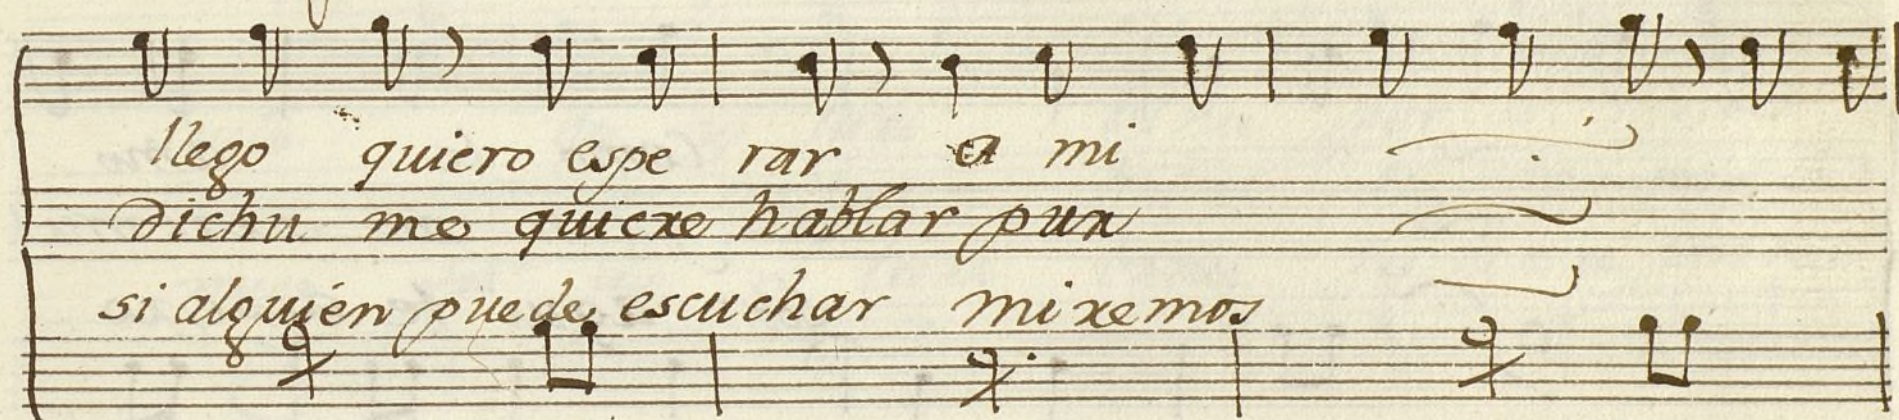 llego quiero espe rar a mi
dichu me quiere hablar pux
si alguien puede escuchar miremos